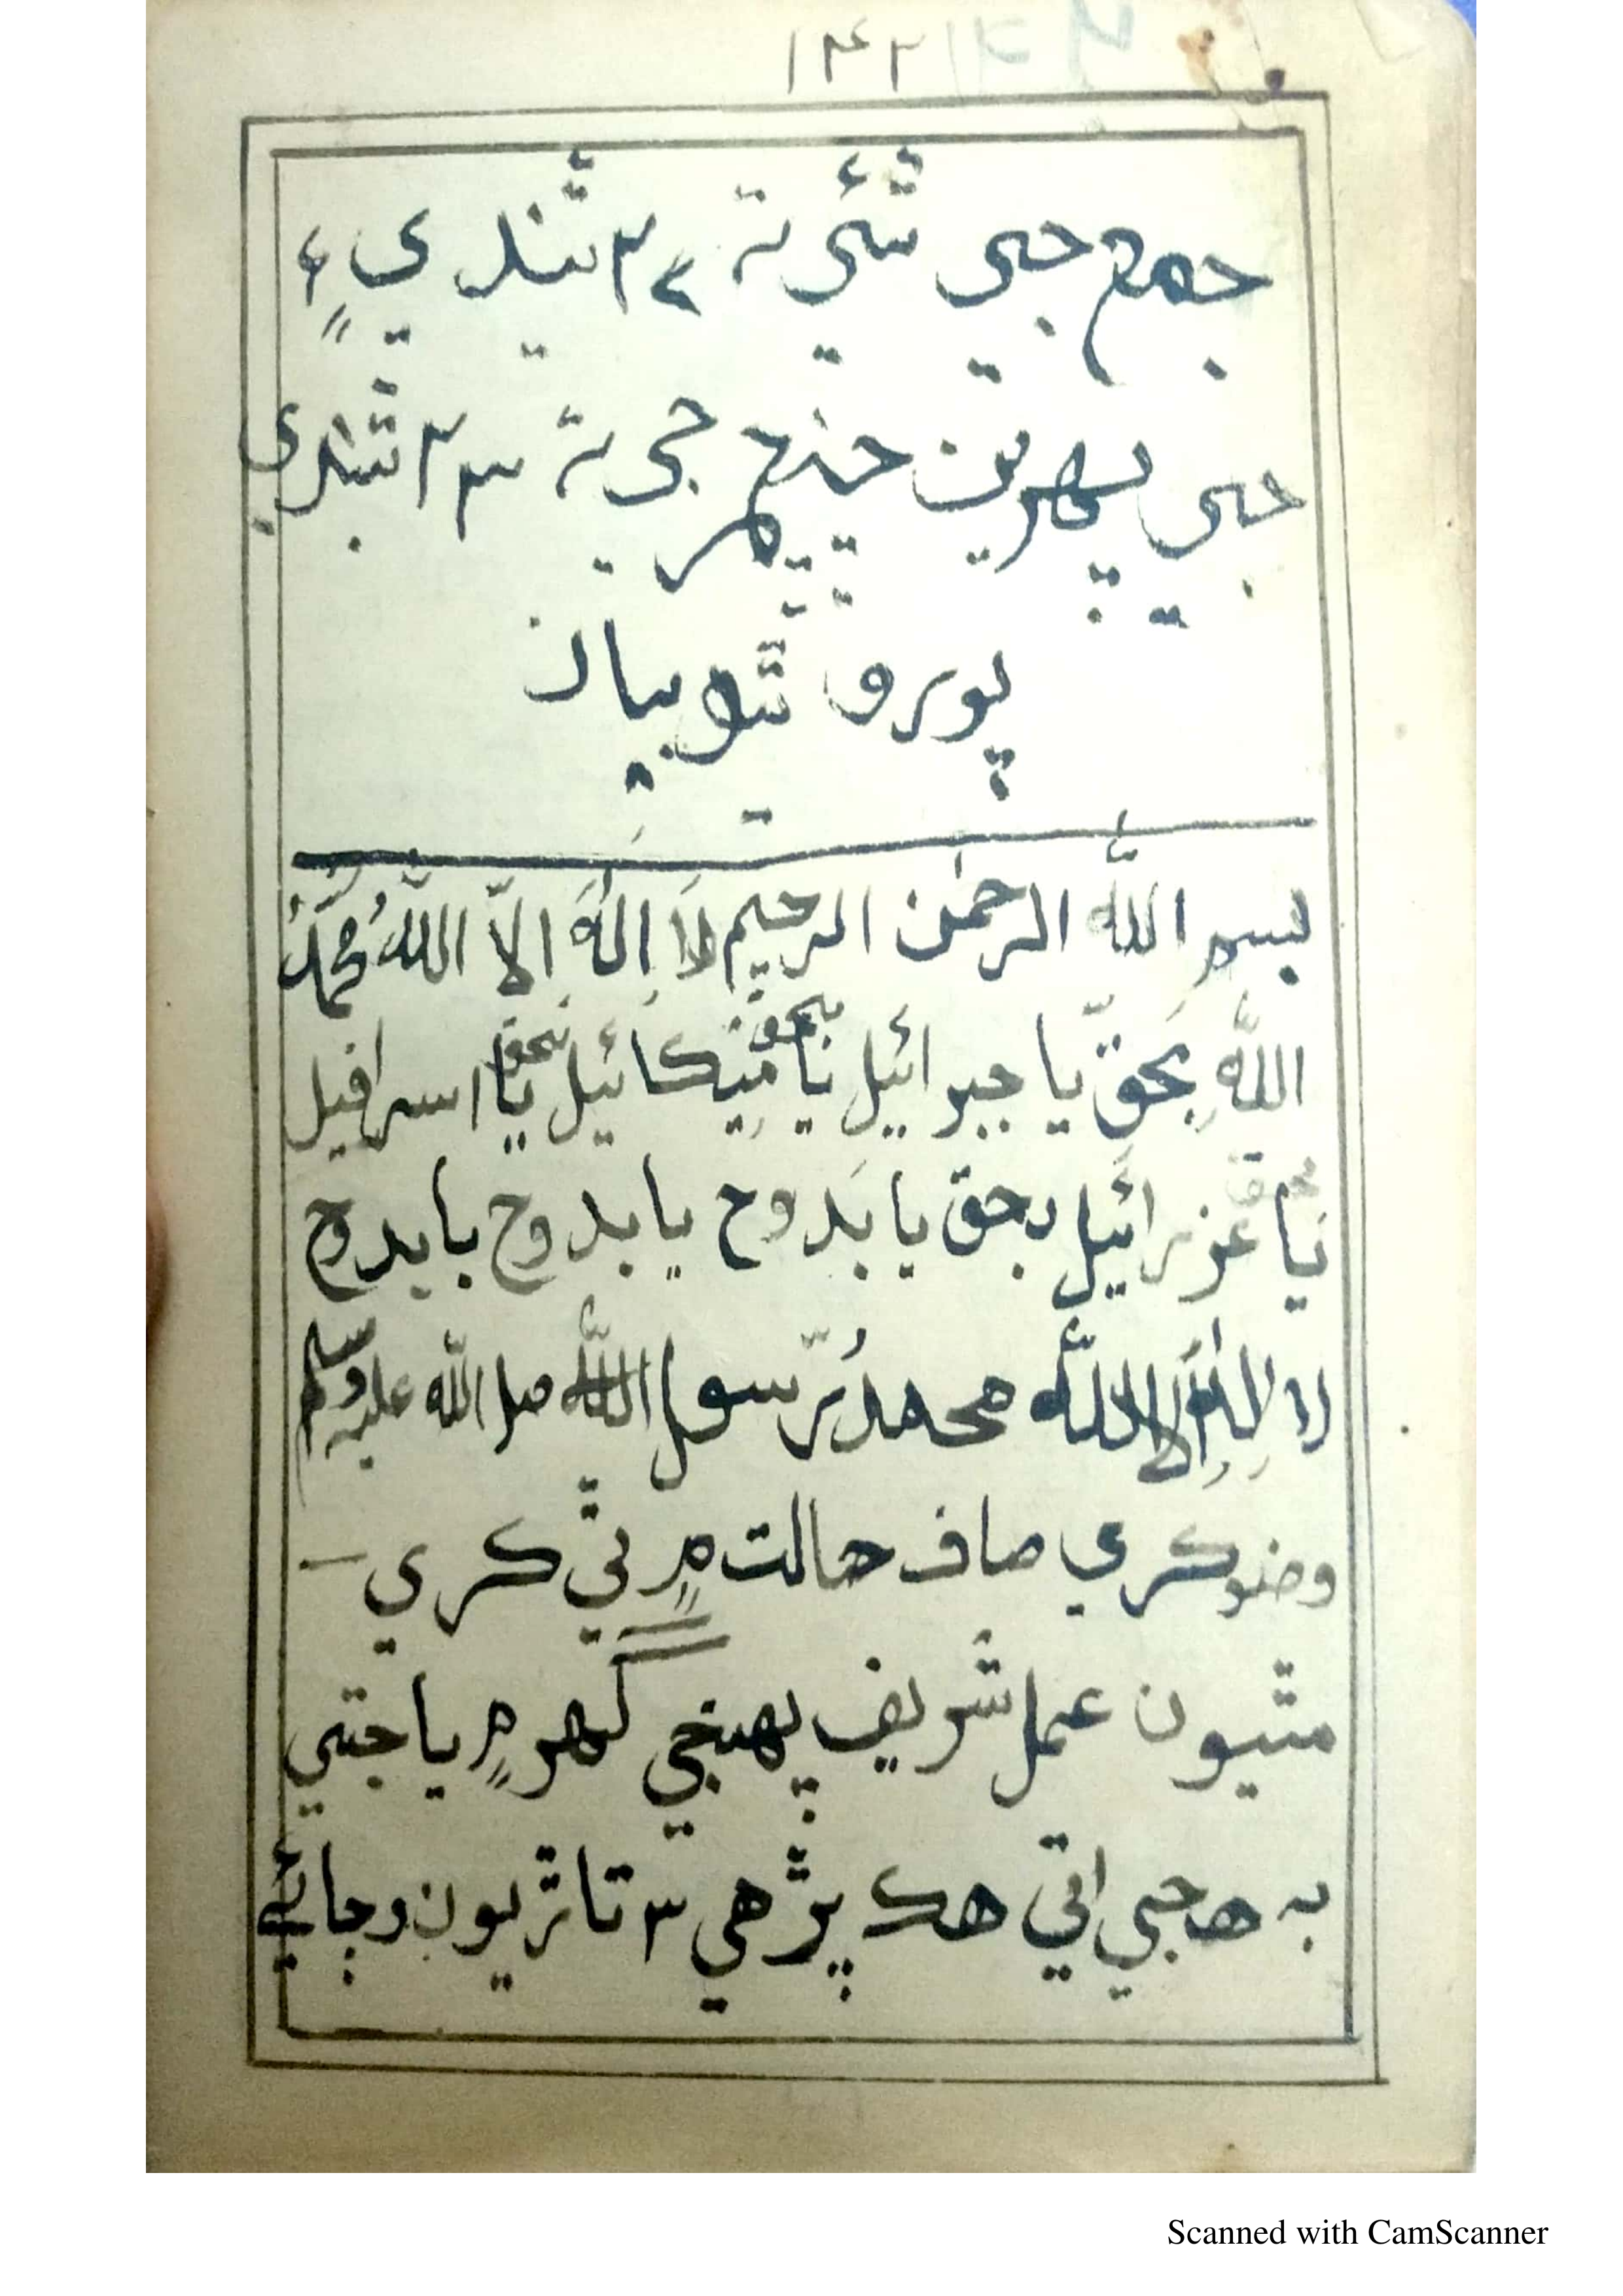 ١٣٢
جمع جي ٿئي ته ٢ ٿيندي ۽
جي پهرين ڇنڇر جي ته ٣ ٢ ٿيندي
پورو ٿيو بيان
بسم الله الرحمٰن الرحيم لَا اِلٰهَ اِلاّ اللّٰهُ مُحَمّدُ
اللّٰهِ بَحَقِّ يا جبرائيل بحق يا ميكائيل بحق يا اسرافيل
بحق يا عزرائيل بحق يا بَدوح يا بدوح يا بدوح
لا اِلٰهَ اِلا اللّٰه محمدُ رّسول اللّٰه صلى اللّٰه عليه وسلم
وضو ڪري صاف حالت ۾ ٿي ڪري –
مٿيون عمل شريف پهنجي گهر ۾ يا جتي
به هجي اتي هڪ پڙهي ٣ تاڙيون وڄائي
Scanned with CamScanner